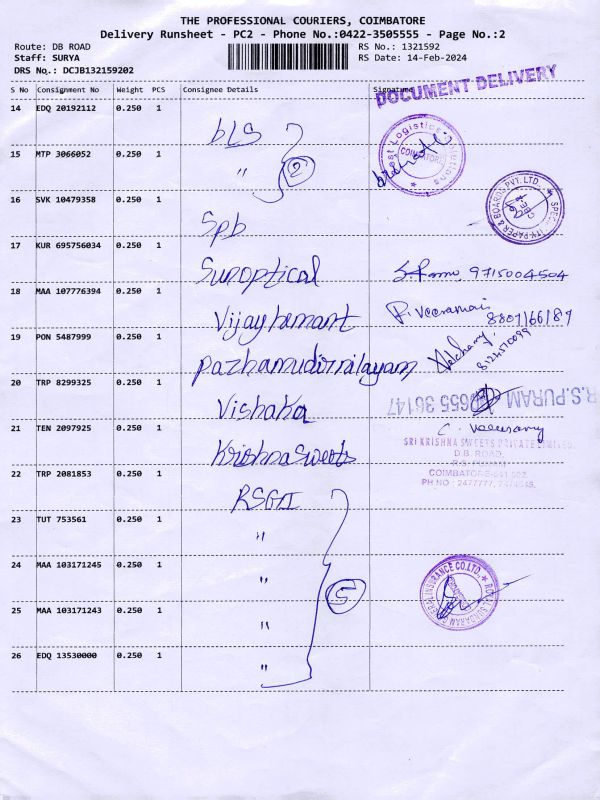 THE PROFESSIONAL COURIERS, COIMBATORE
Delivery Runsheet - PC2 - Phone No.:0422-3505555 - Page No.:2
Route: DB ROAD RS No.: 1321592
Staff: SURYA RS Date: 14-Feb-2024
DRS No.: DCJB132159202
S No Consignment No Weight PCS Consignee Details Signature
DOCUMENT DELIVERY
14 EDQ 20192112 0.250 1 bLS
15 MTP 3066052 0.250 1 " 2
COIMBATORE
16 SVK 10479358 0.250 1 Spb
17 KUR 695756034 0.250 1 Sunoptical 9715004504
18 MAA 107776394 0.250 1 Vijay hemant P. Veeramani
19 PON 5487999 0.250 1 Pazhamudirnilayam
20 TRP 8299325 0.250 1 Vishaka
R.S.PURAM
21 TEN 2097925 0.250 1 Krishna Sweets
SRI KRISHNA SWEETS PRIVATE LIMITED
D.B. ROAD,
22 TRP 2081853 0.250 1 RSGI
23 TUT 753561 0.250 1 "
24 MAA 103171245 0.250 1 "
25 MAA 103171243 0.250 1 " 5
26 EDQ 13530000 0.250 1 "